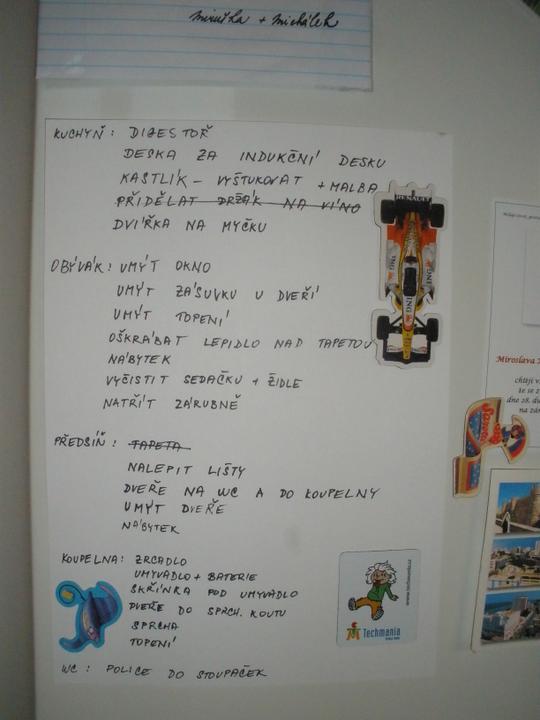 miruška + michálek
KUCHYŇ: DIGESTOŘ
DESKA ZA INDUKČNÍ DESKU
KASTLÍK – VYŠTUKOVAT + MALBA
PŘIDĚLAT DRŽÁK NA VÍNO
DVÍŘKA NA MYČKU
OBÝVÁK: UMÝT OKNO
UMÝT ZÁSUVKU U DVEŘÍ
UMÝT TOPENÍ
OŠKRÁBAT LEPIDLO NAD TAPETOU
NÁBYTEK
VYČISTIT SEDAČKU + ŽIDLE
NATŘÍT ZÁRUBNĚ
PŘEDSÍŇ: TAPETA
NALEPIT LIŠTY
DVEŘE NA WC A DO KOUPELNY
UMÝT DVEŘE
NÁBYTEK
KOUPELNA: ZRCADLO
UMYVADLO + BATERIE
SKŘÍŇKA POD UMYVADLO
DVEŘE DO SPRCH. KOUTU
SPRCHA
TOPENÍ
WC: POLICE DO STOUPAČEK
RENAULT
ING
ING
ING
Techmania
Miroslava
chtějí v
že se z
dne 28. du
na zám